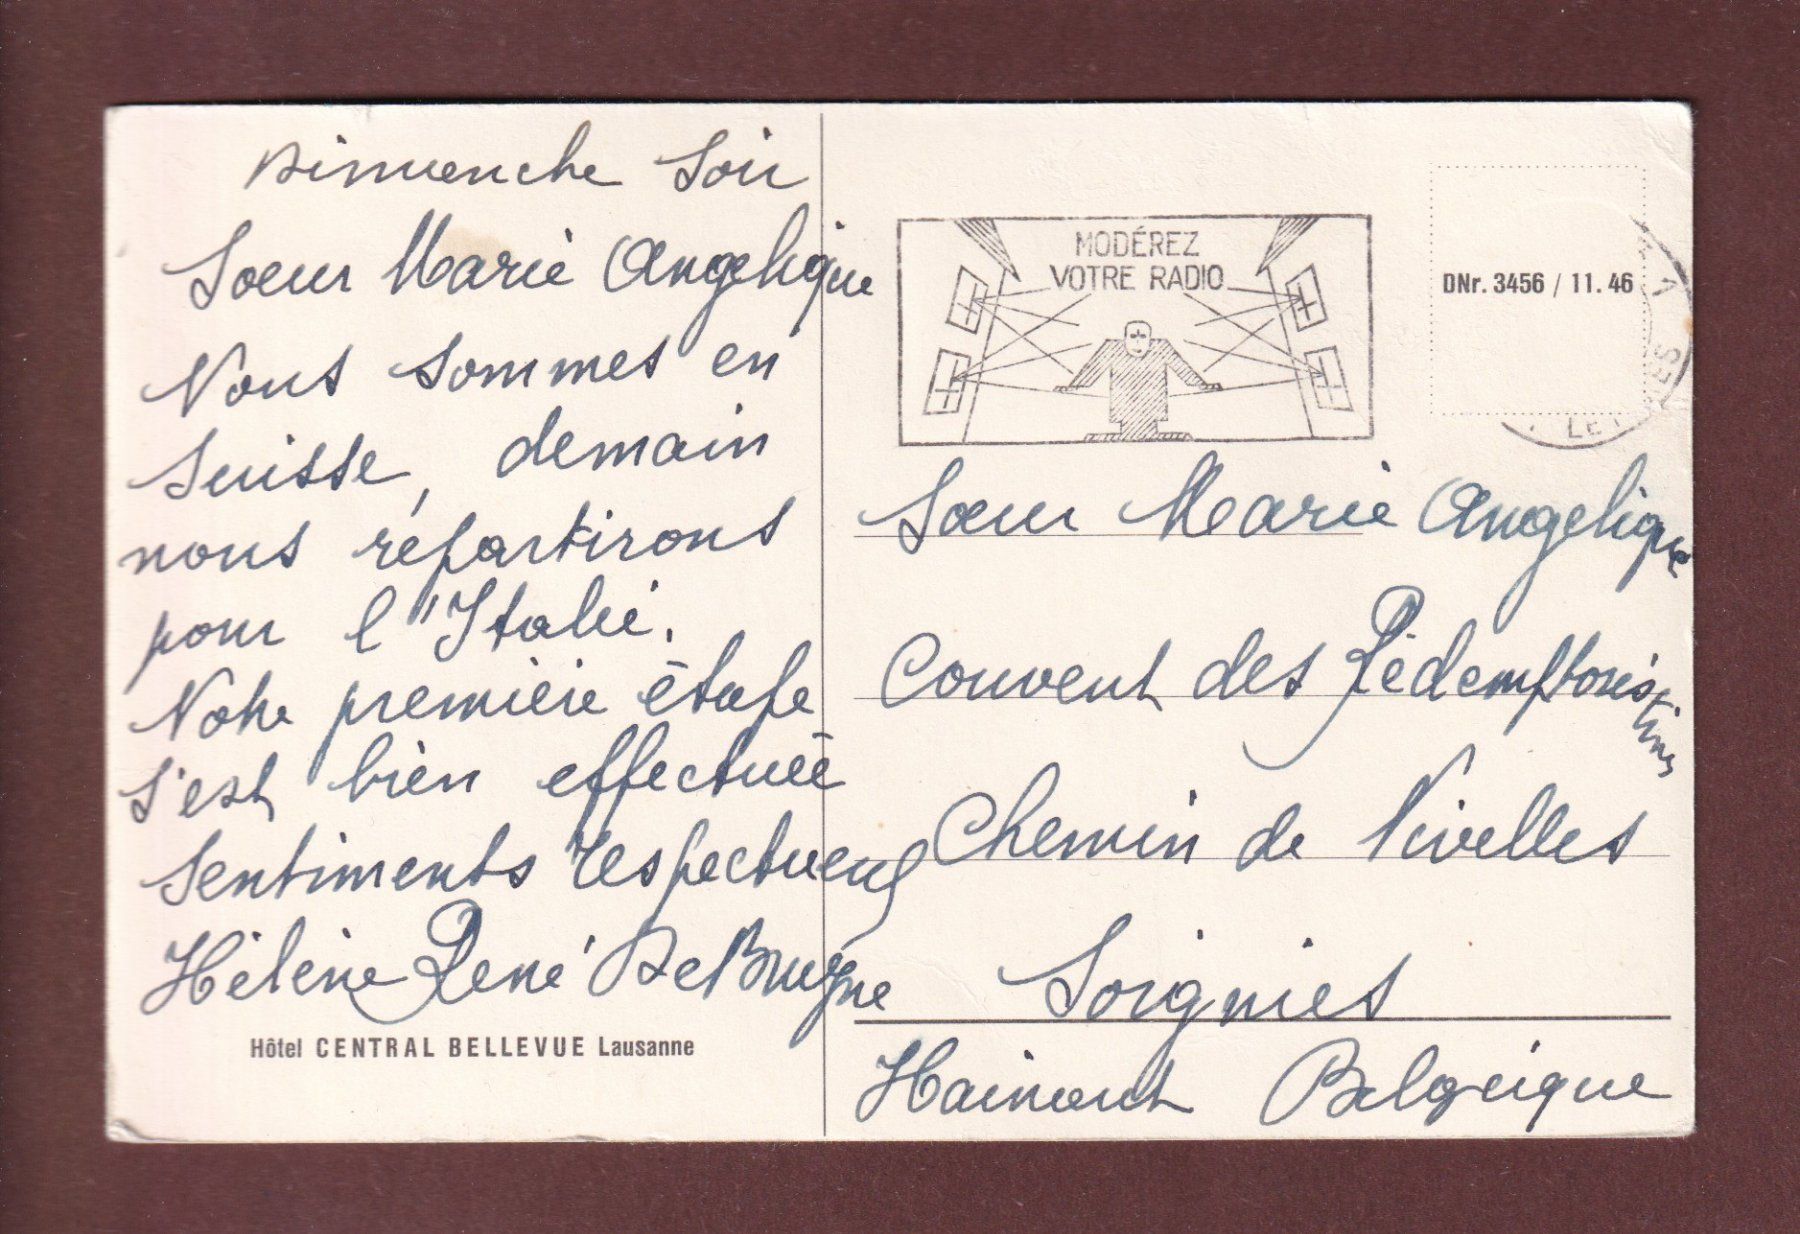 Dimenche Soir
Soeur Marie Angelique
Nous sommes en
Suisse, demain
nous répartirons
pour l'Italie.
Notre première étape
s'est bien effectuée
Sentiments respectueux
Hélène René De Bruyne
Hôtel CENTRAL BELLEVUE Lausanne
MODÉREZ
VOTRE RADIO
DNr. 3456 / 11.46
Sœur Marie Angelique
Couvent des Rédemptoristines
Chemin de Nivelles
Soignies
Hainaut Belgique